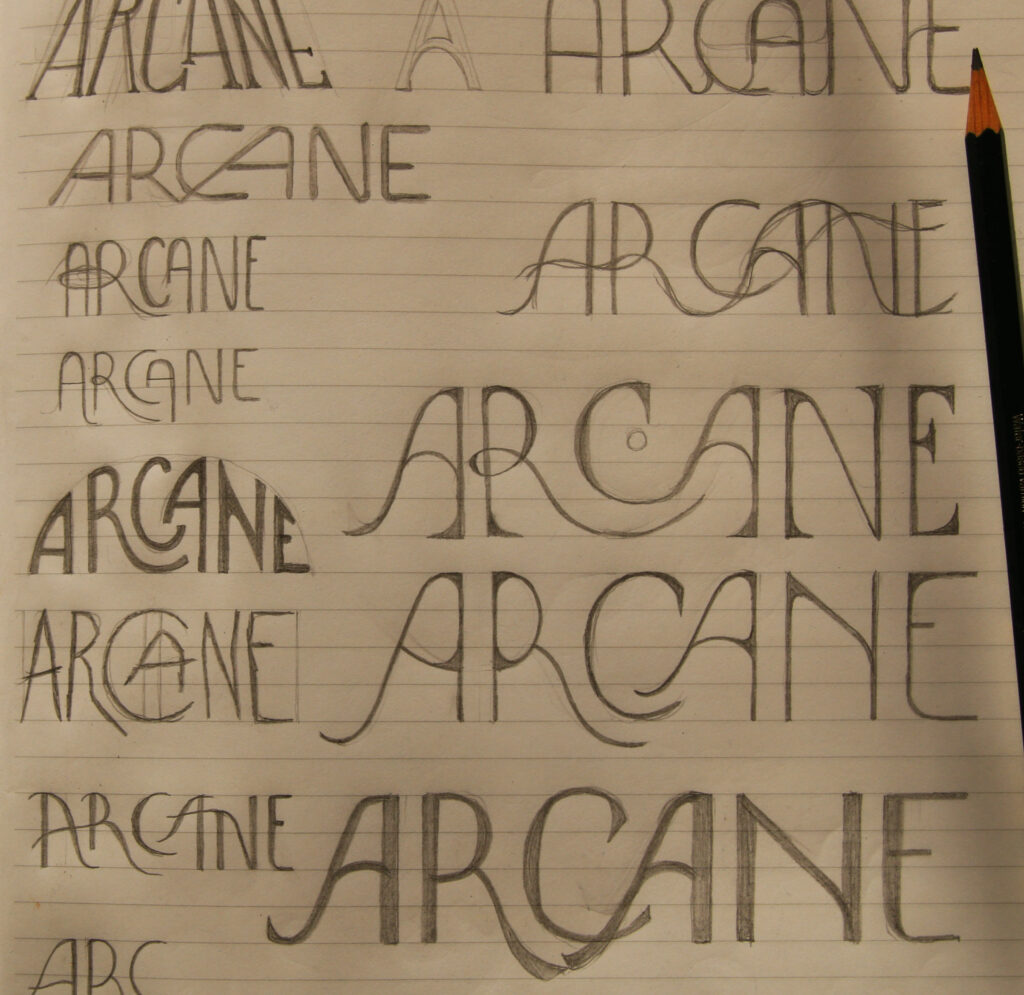 ARCANE A ARCANE
ARCANE
ARCANE
ARCANE
ARCANE
ARCANE
ARCANE
ARCANE
ARCANE
ARCANE
ARCANE
ARCANE
ARC